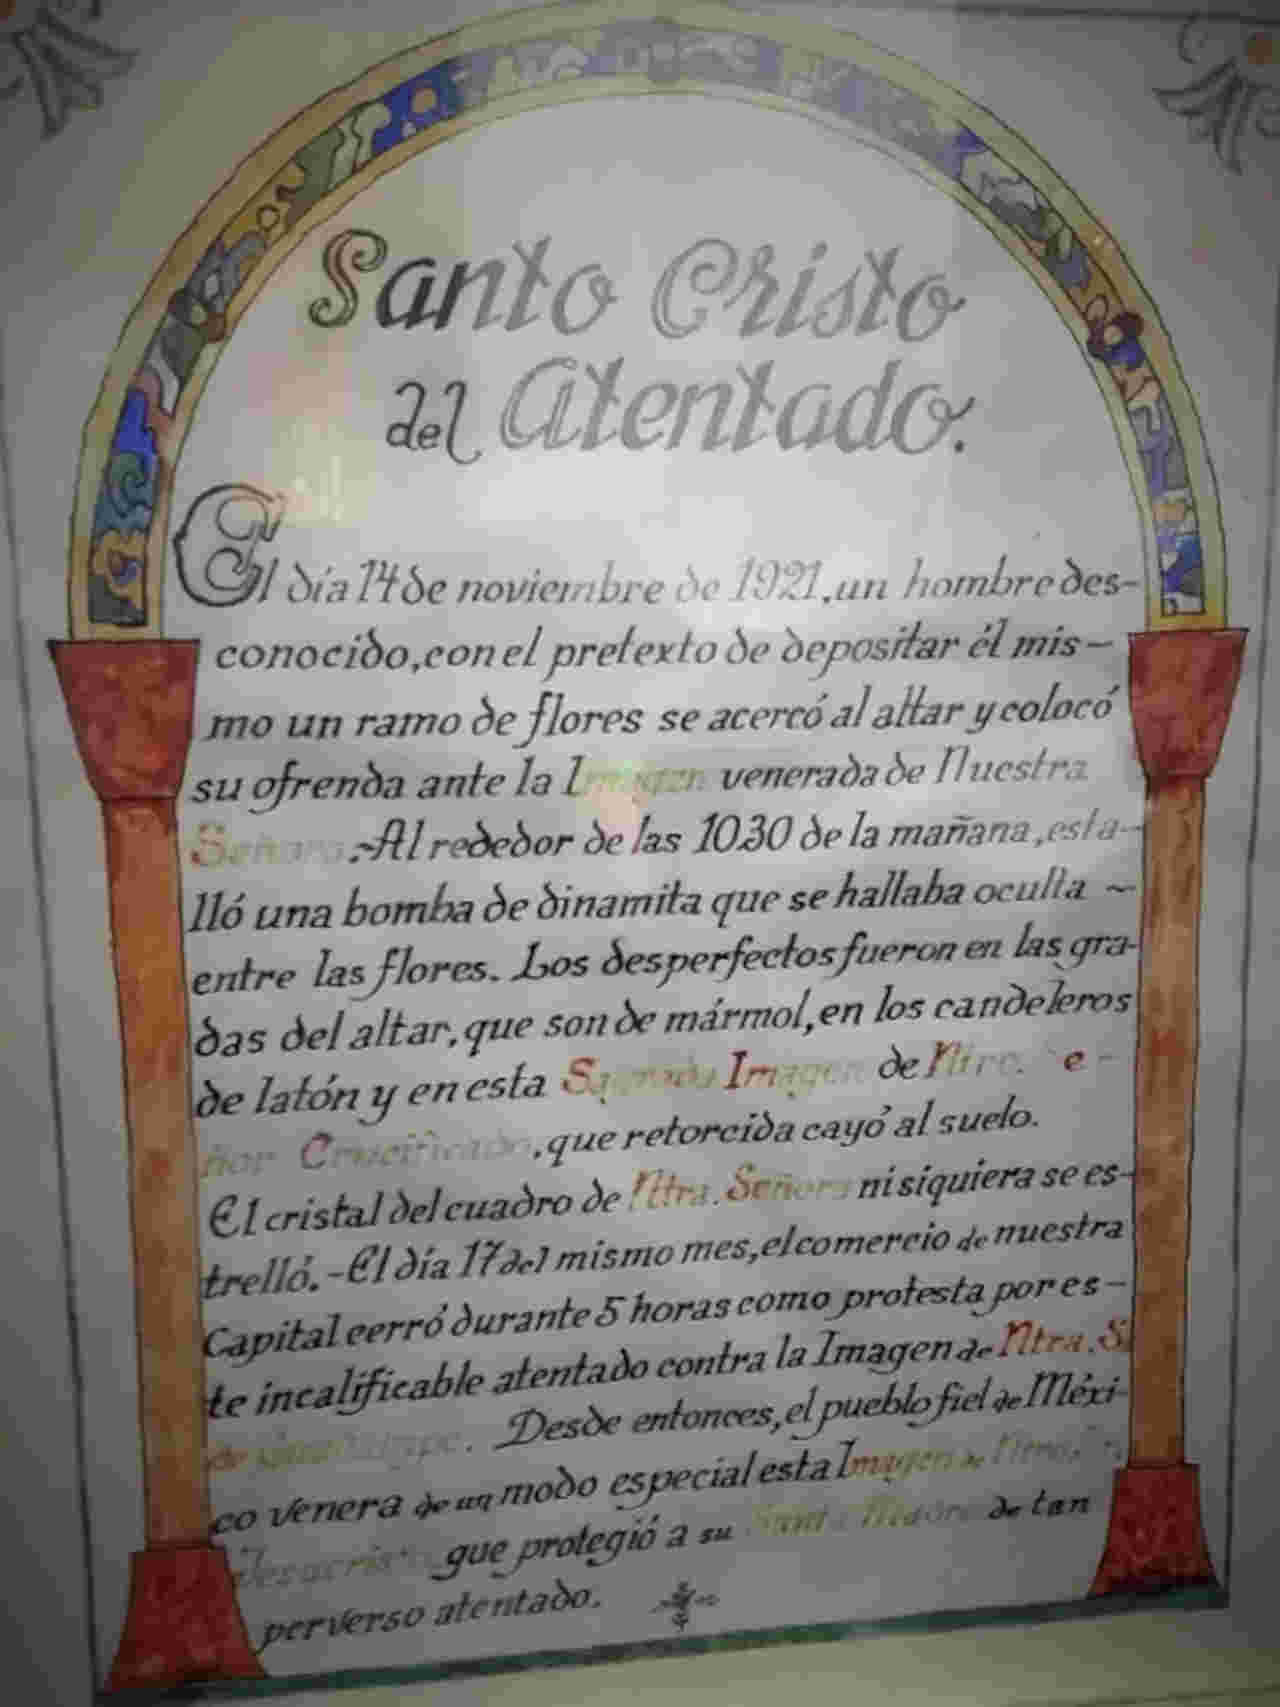 Santo Cristo
del Atentado.
El día 14 de noviembre de 1921, un hombre des-
conocido, con el pretexto de depositar él mis-
mo un ramo de flores se acercó al altar y colocó
su ofrenda ante la Imagen venerada de Nuestra
Señora.-Al rededor de las 10.30 de la mañana, esta-
lló una bomba de dinamita que se hallaba oculta ~
entre las flores. Los desperfectos fueron en las gra-
das del altar, que son de mármol, en los candeleros
de latón y en esta Sagrada Imagen de Ntro. Se-
ñor Crucificado, que retorcida cayó al suelo.
El cristal del cuadro de Ntra. Señora ni siquiera se es-
trelló.-El día 17 del mismo mes, el comercio de nuestra
Capital cerró durante 5 horas como protesta por es-
te incalificable atentado contra la Imagen de Ntra. S.
de Guadalupe. Desde entonces, el pueblo fiel de Méxi-
co venera de un modo especial esta Imagen de Ntro.
Jesucristo que protegió a su Santa Madre de tan
perverso atentado.